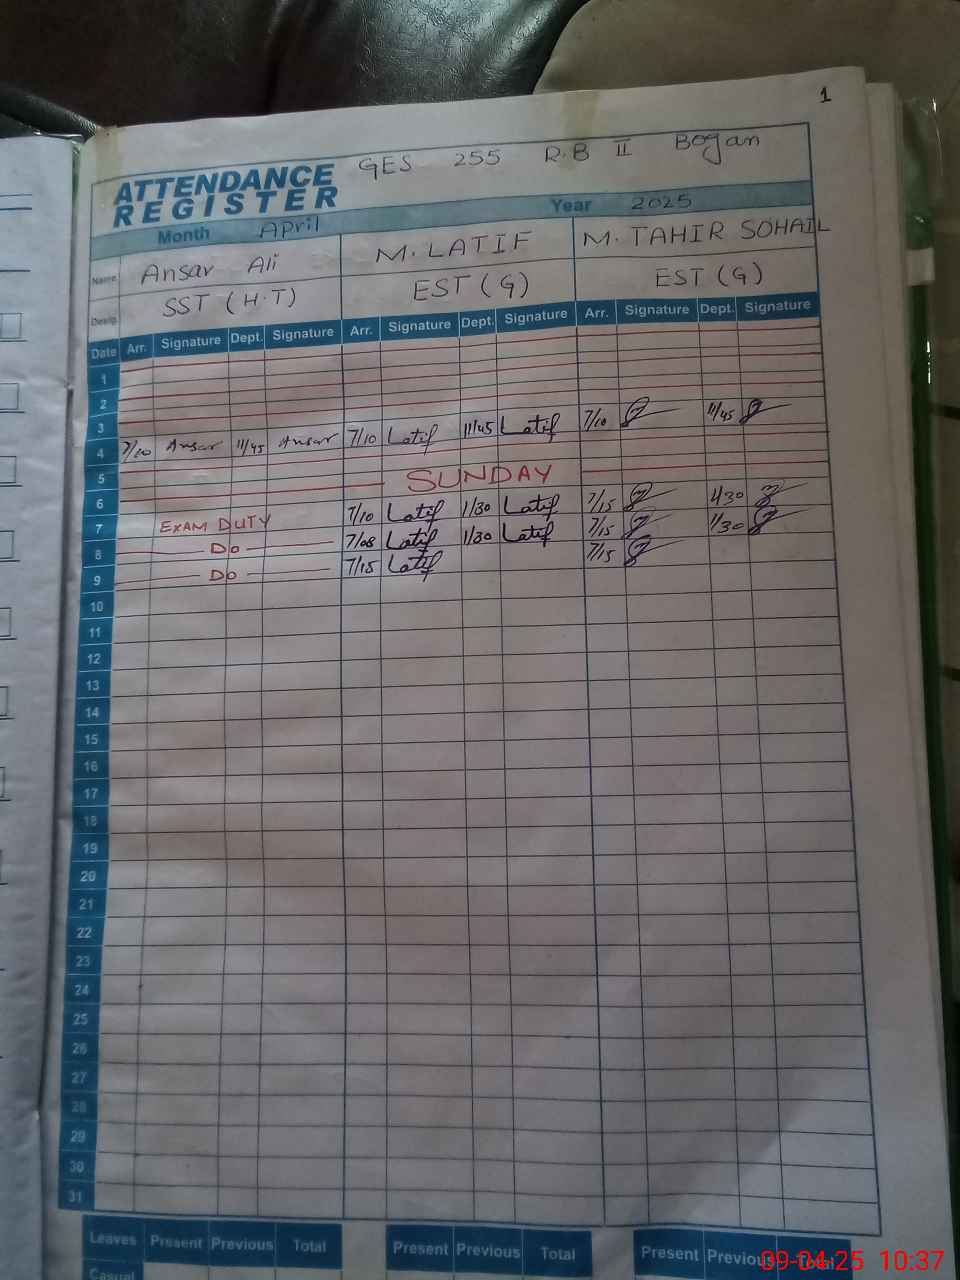 1
GES 255 R.B II Bogan
ATTENDANCE
REGISTER
Month April Year 2025
Name Ansar Ali M. LATIF M. TAHIR SOHAIL
Desig. SST (H.T) EST (G) EST (G)
Date Arr. Signature Dept. Signature Arr. Signature Dept. Signature Arr. Signature Dept. Signature
1
2
3
4 7/10 Ansar 11/45 Ansar 7/10 Latif 11/45 Latif 7/10 11/45
5
6 SUNDAY
7 EXAM DUTY 7/10 Latif 1/30 Latif 7/15 1/30
8 Do 7/08 Latif 1/30 Latif 7/15 1/30
9 Do 7/15 Latif 7/15
10
11
12
13
14
15
16
17
18
19
20
21
22
23
24
25
26
27
28
29
30
31
Leaves Present Previous Total Present Previous Total Present Previous Total
Casual
09-04-25 10:37